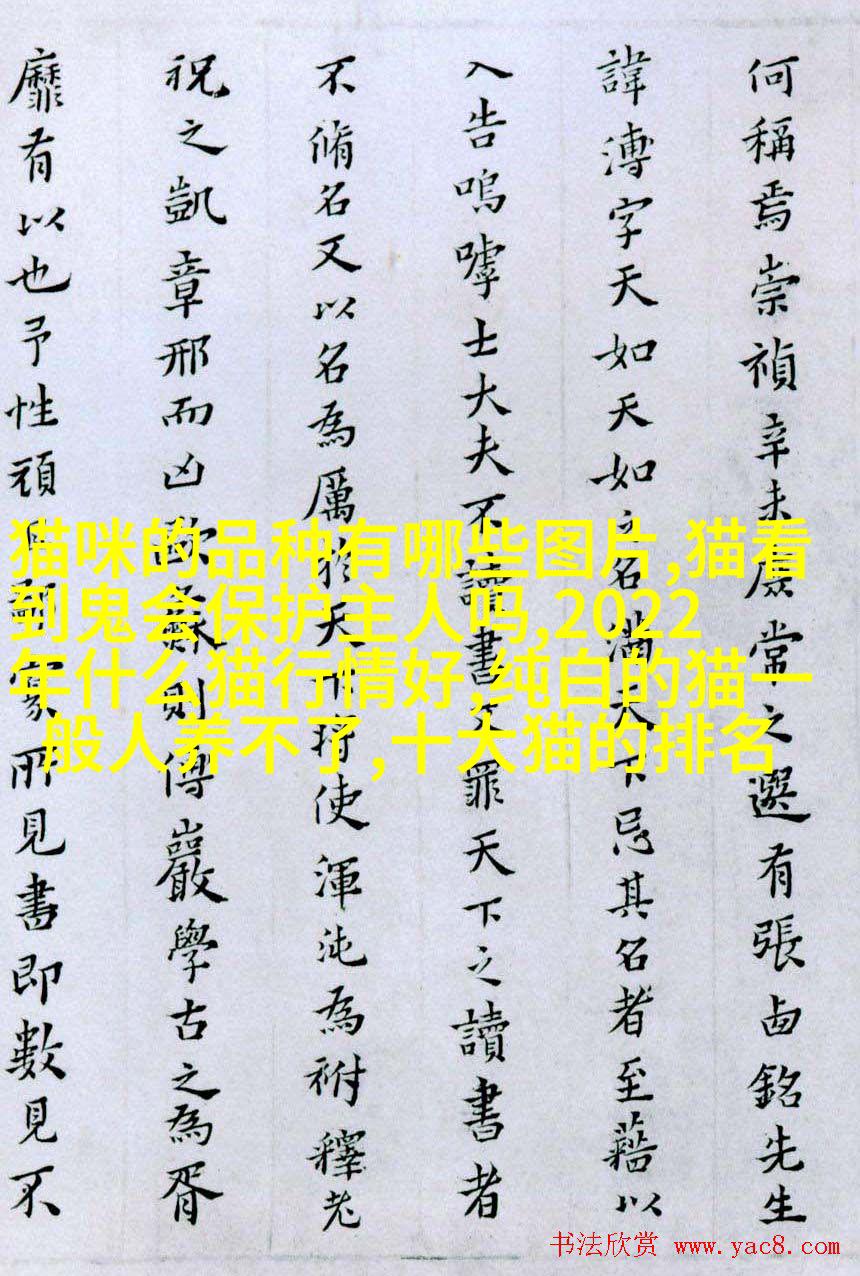 何稱焉崇禎辛未庶常之選有張卣銘先生
諱溥字天如天如之名滿天下忌其名者至藉以
入告嗚嘑士大夫不讀書又罪天下之讀書者
不脩名又以名為厲於天下将使渾沌為祔釋老
祝之凱章邢而凶則傅巖學古之為胥
靡有以也予性頑見書即數見不
猫咪的品种有哪些图片,猫看
到鬼会保护主人吗,2022
年什么猫行情好,纯白的猫一
般人养不了,十大猫的排名
书法欣赏 www.yac8.com